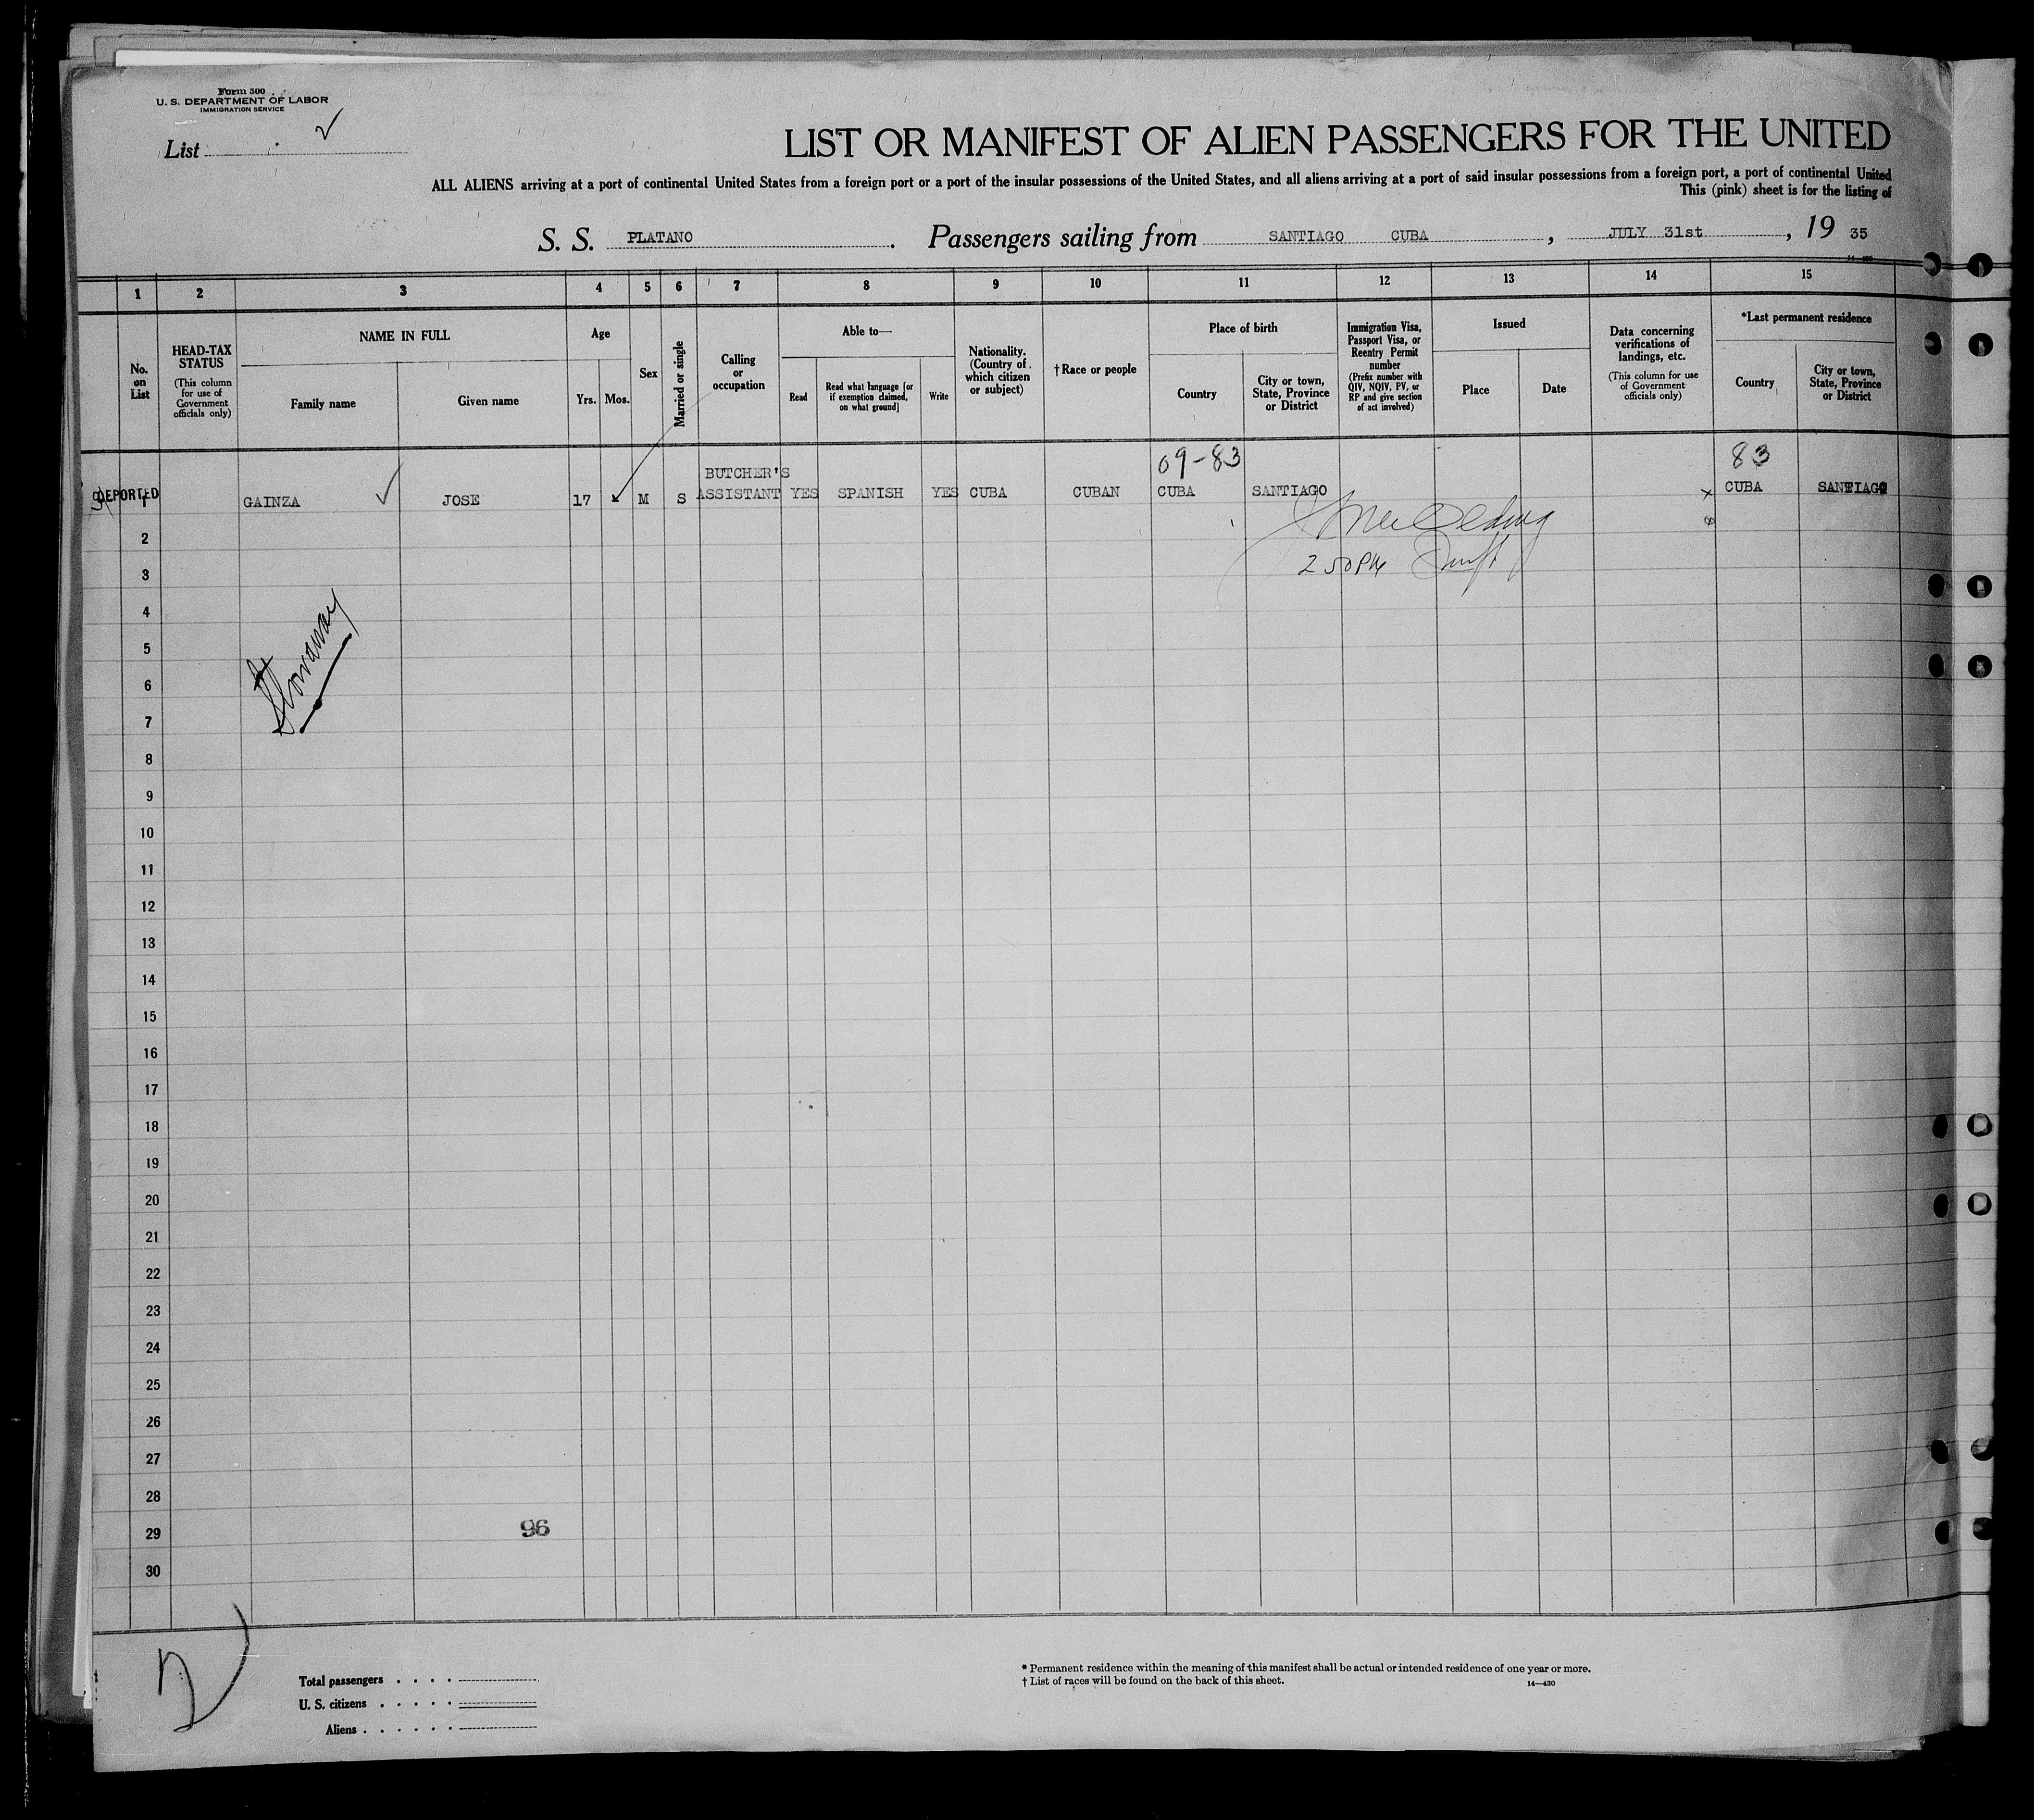 Form 500
U. S. DEPARTMENT OF LABOR
IMMIGRATION SERVICE
List 2
LIST OR MANIFEST OF ALIEN PASSENGERS FOR THE UNITED
ALL ALIENS arriving at a port of continental United States from a foreign port or a port of the insular possessions of the United States, and all aliens arriving at a port of said insular possessions from a foreign port, a port of continental United
This (pink) sheet is for the listing of
S. S. PLATANO. Passengers sailing from SANTIAGO CUBA, JULY 31st, 19 35
14—430
1 2 3 4 5 6 7 8 9 10 11 12 13 14 15
No. on List
HEAD-TAX STATUS
(This column for use of Government officials only)
NAME IN FULL
Family name
Given name
Age
Yrs. Mos.
Sex
Married or single
Calling or occupation
Able to—
Read
Read what language [or if exemption claimed, on what ground]
Write
Nationality. (Country of which citizen or subject)
†Race or people
Place of birth
Country
City or town, State, Province or District
Immigration Visa, Passport Visa, or Reentry Permit number
(Prefix number with QIV, NQIV, PV, or RP and give section of act involved)
Issued
Place
Date
Data concerning verifications of landings, etc.
(This column for use of Government officials only)
*Last permanent residence
Country
City or town, State, Province or District
09-83 83
BUTCHER'S
DEPORTED 1 GAINZA JOSE 17 M S ASSISTANT YES SPANISH YES CUBA CUBAN CUBA SANTIAGO CUBA SANTIAGO
2
2 50 PM
3
4
Stowaway
5
6
7
8
9
10
11
12
13
14
15
16
17
18
19
20
21
22
23
24
25
26
27
28
29 96
30
2
Total passengers . . . .
U. S. citizens . . . . .
Aliens . . . . . .
* Permanent residence within the meaning of this manifest shall be actual or intended residence of one year or more.
† List of races will be found on the back of this sheet.
14—430